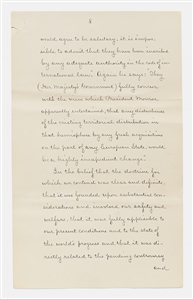 4
would agree to be salutary, it is impos-
sible to admit that they have been inserted
by any adequate authority in the code of in-
ternational law." Again he says: "They
(Her Majesty's Government) fully concur
with the view which President Monroe
apparently entertained, that any disturbance
of the existing territorial distribution in
that hemisphere by any fresh acquisitions
on the part of any European State, would
be a highly inexpedient change."
In the belief that the doctrine for
which we contend was clear and definite,
that it was founded upon substantial con-
siderations and involved our safety and
welfare, that it was fully applicable to
our present conditions and to the state of
the world's progress and that it was di-
rectly related to the pending controversy
and